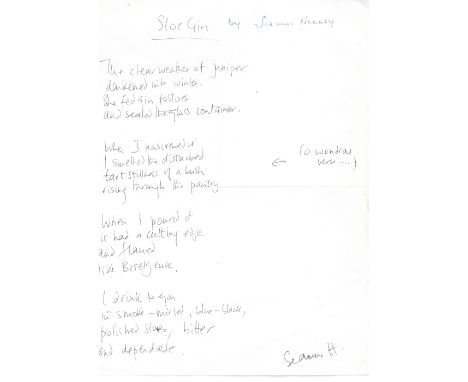 Sloe Gin by Seamus Heaney
The clear weather of juniper
darkened into winter.
She fed gin to sloes
and sealed the glass container.
When I unscrewed it
I smelled the disturbed
tart stillness of a bush
rising through the pantry.
← (o wondrous
verse....)
When I poured it
it had a cutting edge
and flamed
like Betelgeuse.
I drink to you
in smoke-mirled, blue-black,
polished sloes, bitter
and dependable.
Seamus H.